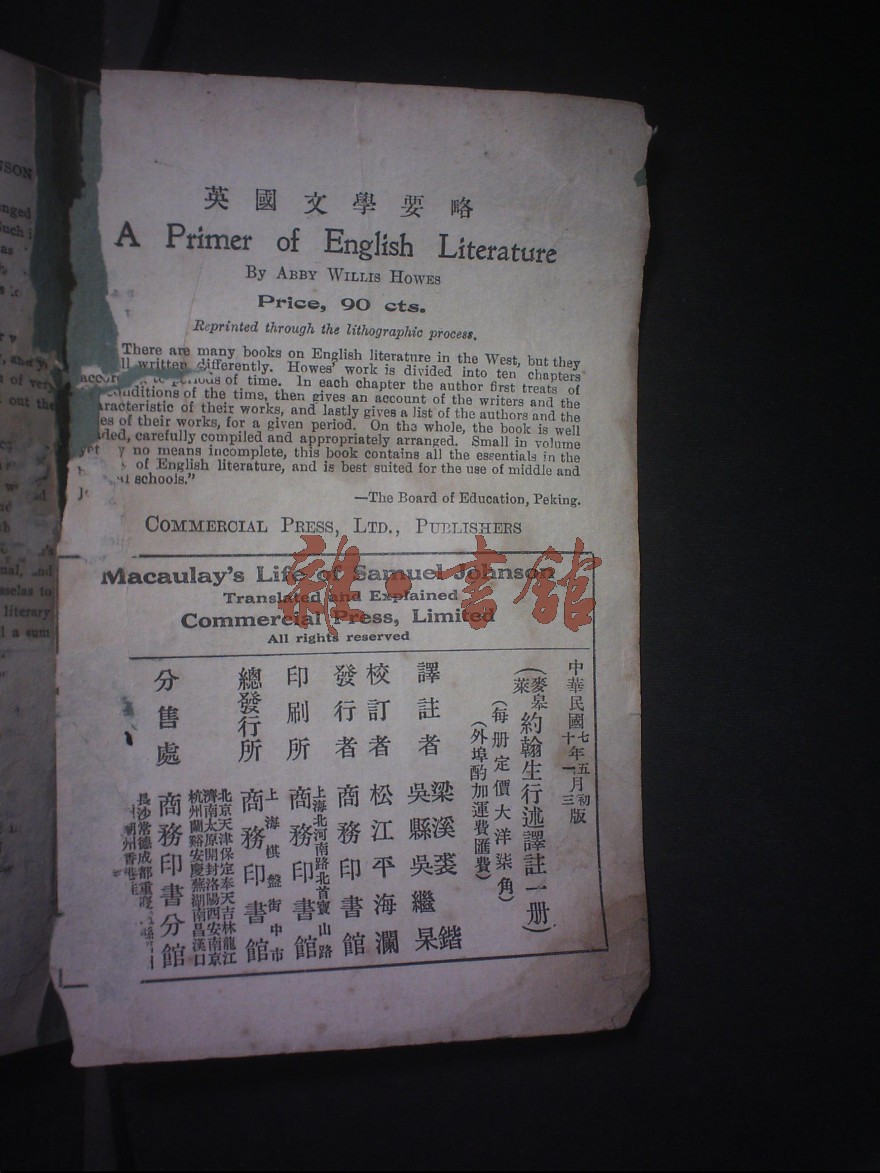 英國文學要略
A Primer of English Literature
By ABBY WILLIS HOWES
Price, 90 cts.
Reprinted through the lithographic process.
There are many books on English literature in the West, but they
written differently. Howes' work is divided into ten chapters
to periods of time. In each chapter the author first treats of
conditions of the time, then gives an account of the writers and the
aracteristic of their works, and lastly gives a list of the authors and the
es of their works, for a given period. On the whole, the book is well
ded, carefully compiled and appropriately arranged. Small in volume
yet y no means incomplete, this book contains all the essentials in the
of English literature, and is best suited for the use of middle and
schools."
—The Board of Education, Peking.
COMMERCIAL PRESS, LTD., PUBLISHERS
Macaulay's Life of Samuel Johnson
Translated and Explained
Commercial Press, Limited
All rights reserved
雜·書館
中華民國七年五月初版
十一三
(麥皋萊約翰生行述譯註一册)
(每册定價大洋柒角)
(外埠酌加運費匯費)
譯註者 梁溪裘 鍇
吳縣吳繼杲
校訂者 松江平海瀾
發行者 商務印書館
印刷所 上海北河南路北首寶山路
商務印書館
總發行所 上海棋盤街中市
商務印書館
分售處 北京天津保定奉天吉林龍江
濟南太原開封洛陽西安南京
杭州蘭谿安慶蕪湖南昌漢口
商務印書分館
長沙常德成都重
潮州香港
NSON
nged
uch i
as
of very
out the
nal, and
sselas to
literary
l a sum